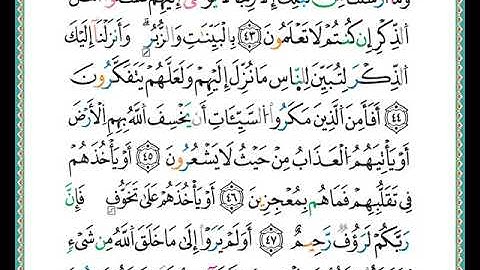 الذِّكْرِ إِن كُنتُمْ لَا تَعْلَمُونَ ٤٣ بِالْبَيِّنَاتِ وَالزُّبُرِ ۗ وَأَنزَلْنَا إِلَيْكَ
الذِّكْرَ لِتُبَيِّنَ لِلنَّاسِ مَا نُزِّلَ إِلَيْهِمْ وَلَعَلَّهُمْ يَتَفَكَّرُونَ
٤٤ أَفَأَمِنَ الَّذِينَ مَكَرُوا السَّيِّئَاتِ أَن يَخْسِفَ اللَّهُ بِهِمُ الْأَرْضَ
أَوْ يَأْتِيَهُمُ الْعَذَابُ مِنْ حَيْثُ لَا يَشْعُرُونَ ٤٥ أَوْ يَأْخُذَهُمْ
فِي تَقَلُّبِهِمْ فَمَا هُم بِمُعْجِزِينَ ٤٦ أَوْ يَأْخُذَهُمْ عَلَىٰ تَخَوُّفٍ فَإِنَّ
رَبَّكُمْ لَرَءُوفٌ رَّحِيمٌ ٤٧ أَوَلَمْ يَرَوْا إِلَىٰ مَا خَلَقَ اللَّهُ مِن شَيْءٍ